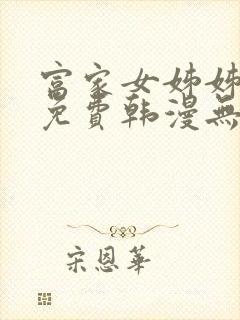 富家女姊姊
免費韩漫無
宋恩華